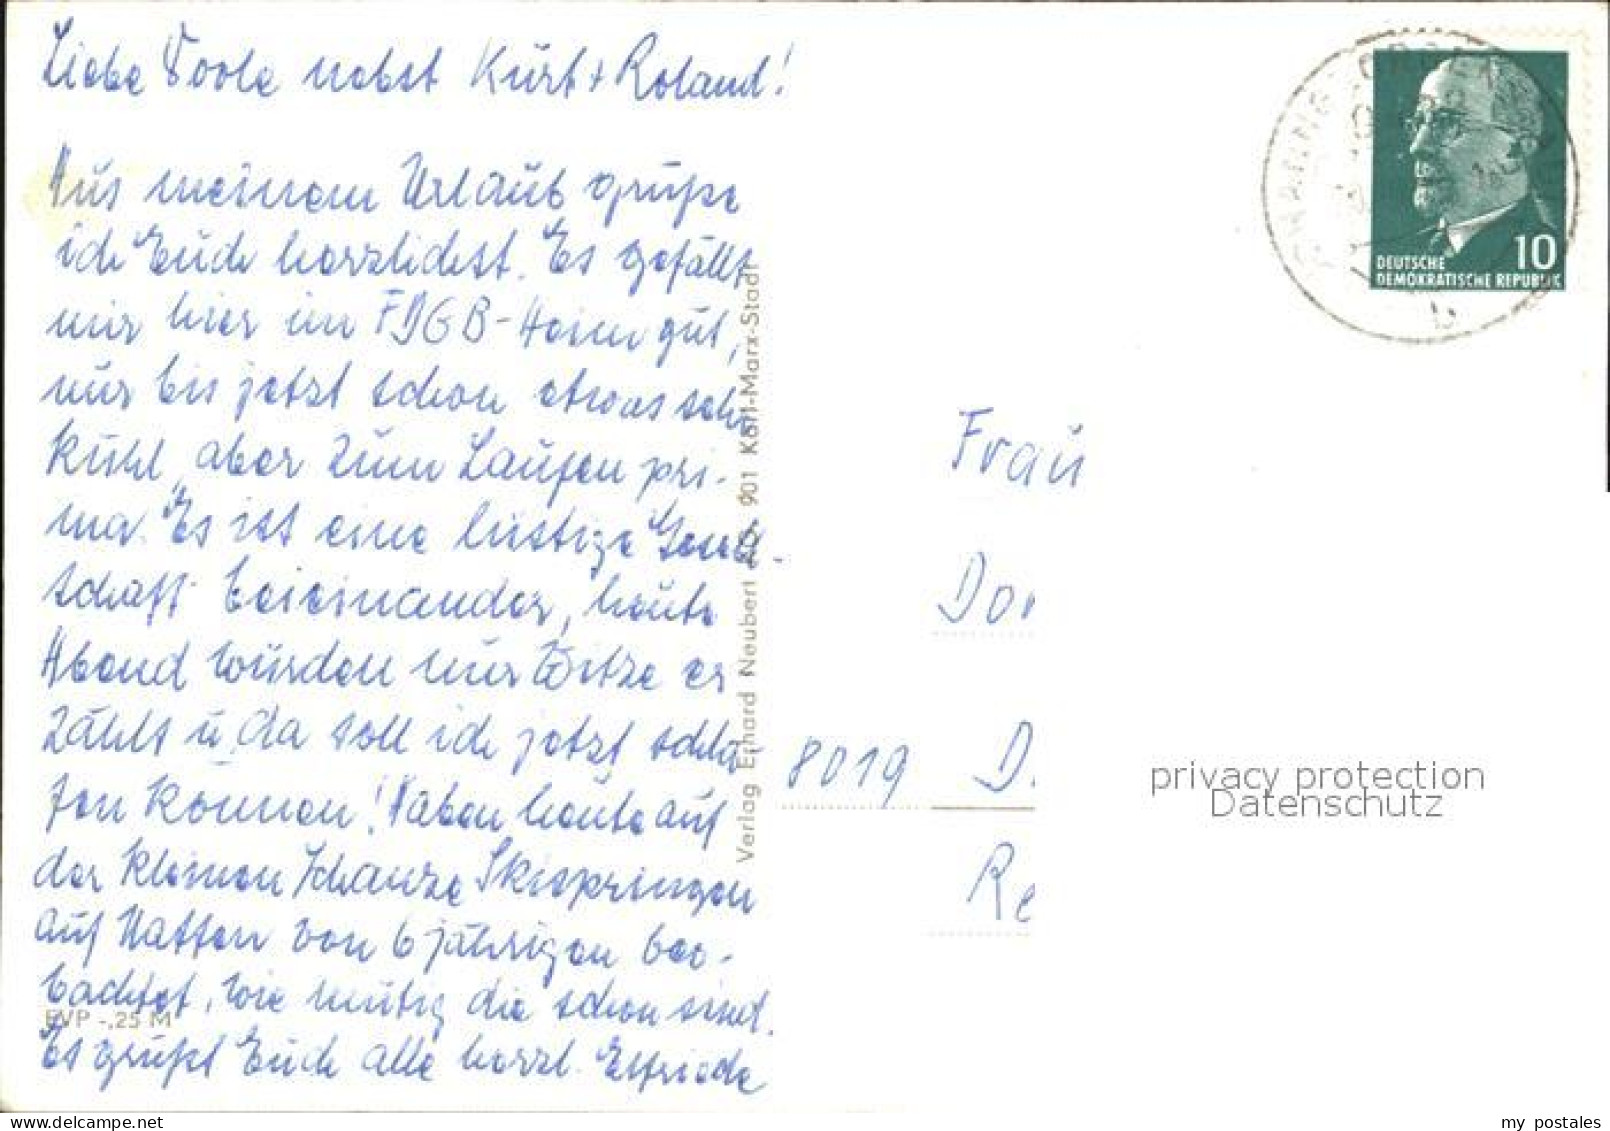 Liebe Voole nebst Kurt + Roland!
Aus meinem Urlaub grüße
ich Euch herzlichst. Es gefällt
mir hier im FDGB-Heim gut,
nur bis jetzt schon etwas sehr
kühl, aber zum Laufen pri-
ma. Es ist eine lustige Gesell-
schaft beieinander, heute
Abend wurden nur Witze er
zählt u. da soll ich jetzt schla-
fen können! Haben heute auf
der kleinen Schanze Skispringen
auf Matten von 6jährigen beo-
bachtet, wie mutig die schon sind.
Es grüßt Euch alle herzl. Elfriede
EVP -,25 M
Verlag Erhard Neubert 901 Karl-Marx-Stadt
10
DEUTSCHE
DEMOKRATISCHE REPUBLIK
Frau
Dor
8019 D.
Re
privacy protection
Datenschutz
my postales